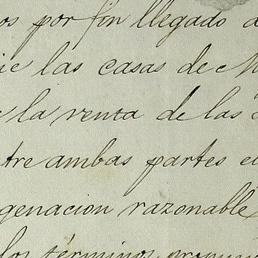 os por fin llegado a
ie las casas de M
la venta de las
tre ambas partes e
genacion razonable
los términos